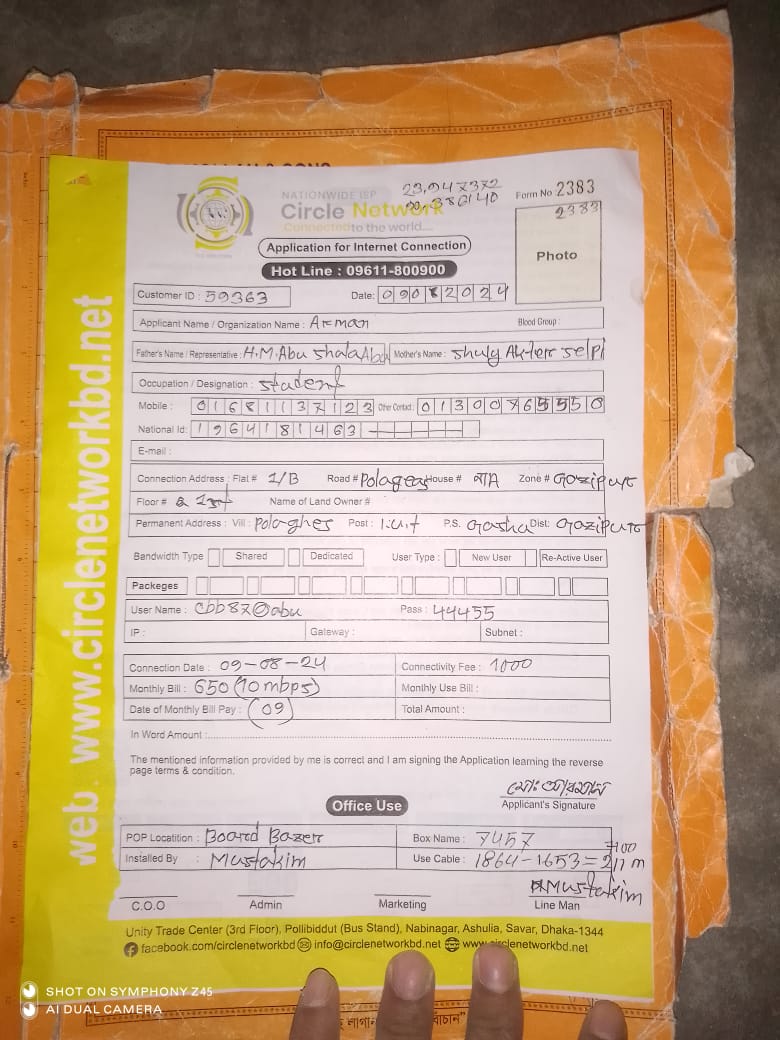 NATIONWIDE ISP
23,947372
Form No 2383
Circle Network
90,386140
2383
Connected to the world....
Application for Internet Connection
Photo
Hot Line : 09611-800900
Customer ID : 59363 Date: 09082024
Applicant Name / Organization Name : Arman Blood Group :
Father's Name / Representative : H.M.Abu Shala Mother's Name : Shuly Akterr selpi
Occupation / Designation : student
Mobile : 01681137123 Other Contact : 01300765550
National Id: 1964181463
E-mail :
Connection Address : Flat # 1/B Road # House # না Zone # Gazipur
Floor # 1st Name of Land Owner #
Permanent Address : Vill : Polaghes Post : I.u.t P.S. Gasha Dist: Gazipur
Bandwidth Type Shared Dedicated User Type : New User Re-Active User
Packeges
User Name : Cbb87@abu Pass : 44455
IP : Gateway : Subnet :
Connection Date : 09-08-24 Connectivity Fee : 1000
Monthly Bill : 650 (10 mbps) Monthly Use Bill :
Date of Monthly Bill Pay : (09) Total Amount :
In Word Amount :
The mentioned information provided by me is correct and I am signing the Application learning the reverse
page terms & condition.
মোঃ আরমান
Applicant's Signature
Office Use
POP Locatition : Board Bazer Box Name : 7457
+100
Installed By : Mustakim Use Cable : 1864-1653=211 m
Mustakim
C.O.O Admin Marketing Line Man
Unity Trade Center (3rd Floor), Pollibiddut (Bus Stand), Nabinagar, Ashulia, Savar, Dhaka-1344
facebook.com/circlenetworkbd info@circlenetworkbd.net www.circlenetworkbd.net
web www.circlenetworkbd.net
SHOT ON SYMPHONY Z45
AI DUAL CAMERA